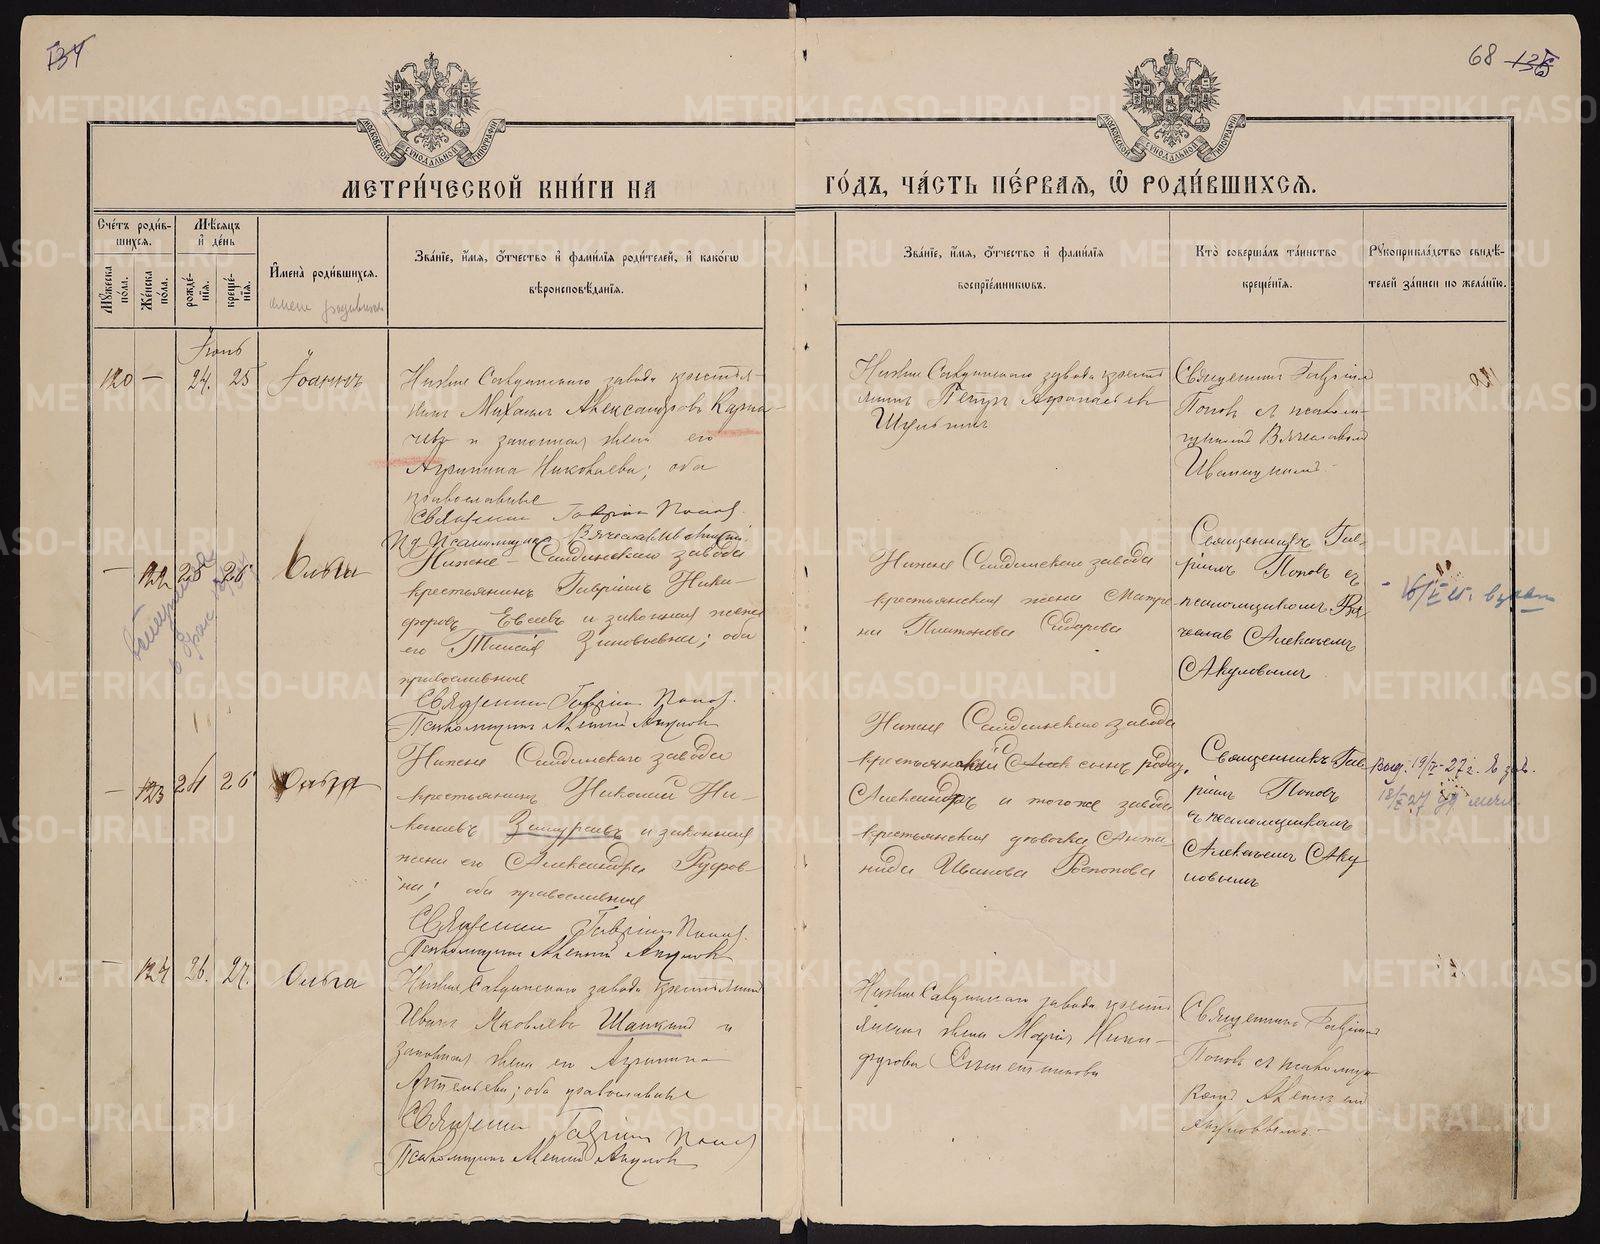 134
68 136
МОСКОВСКОЙ СѴНОДАЛЬНОЙ ТИПОГРАФІИ
МОСКОВСКОЙ СѴНОДАЛЬНОЙ ТИПОГРАФІИ
МЕТРИ́ЧЕСКОЙ КНИ́ГИ НА ГО́ДЪ, ЧА́СТЬ ПЕ́РВАЯ, Ѡ҆ РОДИ́ВШИХСЯ.
Сче́тъ роди́в-
шихся.
Мѣ́сяцъ
и҆ де́нь
Му́жеска по́ла.
Же́нска по́ла.
рожде́-
нія.
креще́-
нія.
И҆мена̀ роди́вшихся.
имена родившихся
Зва́ніе, и҆́мя, о҆́тчество и҆ фами́лія роди́телей, и҆ како́гѡ
вѣроисповѣ́данія.
Зва́ніе, и҆́мя, о҆́тчество и҆ фами́лія
воспріе́мниковъ.
Кто̀ соверша́лъ та́инство
креще́нія.
Рꙋкоприкла́дство свидѣ́-
телей за́писи по жела́нію.
Іюнь
120 — 24. 25 Іоаннъ
Нижне Салдинскаго завода крестья-
нинъ Михаилъ Александровъ Карпа-
чевъ и законная жена его
Агрипина Николаева; оба
православные
Священникъ Гавріилъ Поповъ.
Нижне Салдинскаго завода кресть
янинъ Петръ Афанасьевъ
Шульгинъ
Священникъ Гавріилъ
Поповъ съ псалом-
щикомъ Вячеславомъ
— 122 25 26 Ольга
Нижне-Салдинскаго завода
крестьянинъ Гавріилъ Ники-
форовъ Евсеевъ и законная жена
его Таисія Зиновьевна; оба
православные
Священникъ Гавріилъ Поповъ.
Псаломщикъ Алексій Акуловъ
Нижне Салдинскаго завода
крестьянская жена Матре
на Платонова Сидорова
Священникъ Гав-
ріилъ Поповъ съ
псаломщикомъ
Алексѣемъ
Акуловымъ
— 123 24 26 Ольга
Нижне Салдинскаго завода
крестьянинъ Николай Ни-
колаевъ Замураевъ и законная
жена его Александра Руфов-
на; оба православные
Священникъ Гавріилъ Поповъ.
Псаломщикъ Алексій Акуловъ
Нижне Салдинскаго завода
крестьянскій сынъ
Александръ и тогоже завода
крестьянская дѣвочка Анто
нида Иванова Распопова
Священникъ Гав-
ріилъ Поповъ
съ псаломщикомъ
Алексѣемъ Аку
ловымъ
Выд. 19/IV-27г.
— 124 26. 27. Ольга
Нижне Салдинскаго завода крестьянинъ
Иванъ Яковлевъ Шапкинъ и
законная жена его Агрипина
оба православные
Священникъ Гавріилъ Поповъ
Псаломщикъ Алексій Акуловъ
Нижне Салдинскаго завода кресть
янская жена Марія Ники-
форова
Священникъ Гавріилъ
Поповъ съ псаломщи-
комъ Алексѣемъ
Акуловымъ
METRIKI.GASO-URAL.RU